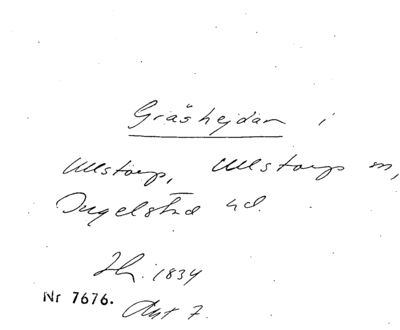 Gråshejdan i
Ullstorp, Ullstorps sn,
Ingelstad hd.
1834
Nr 7676.
Ant 7.